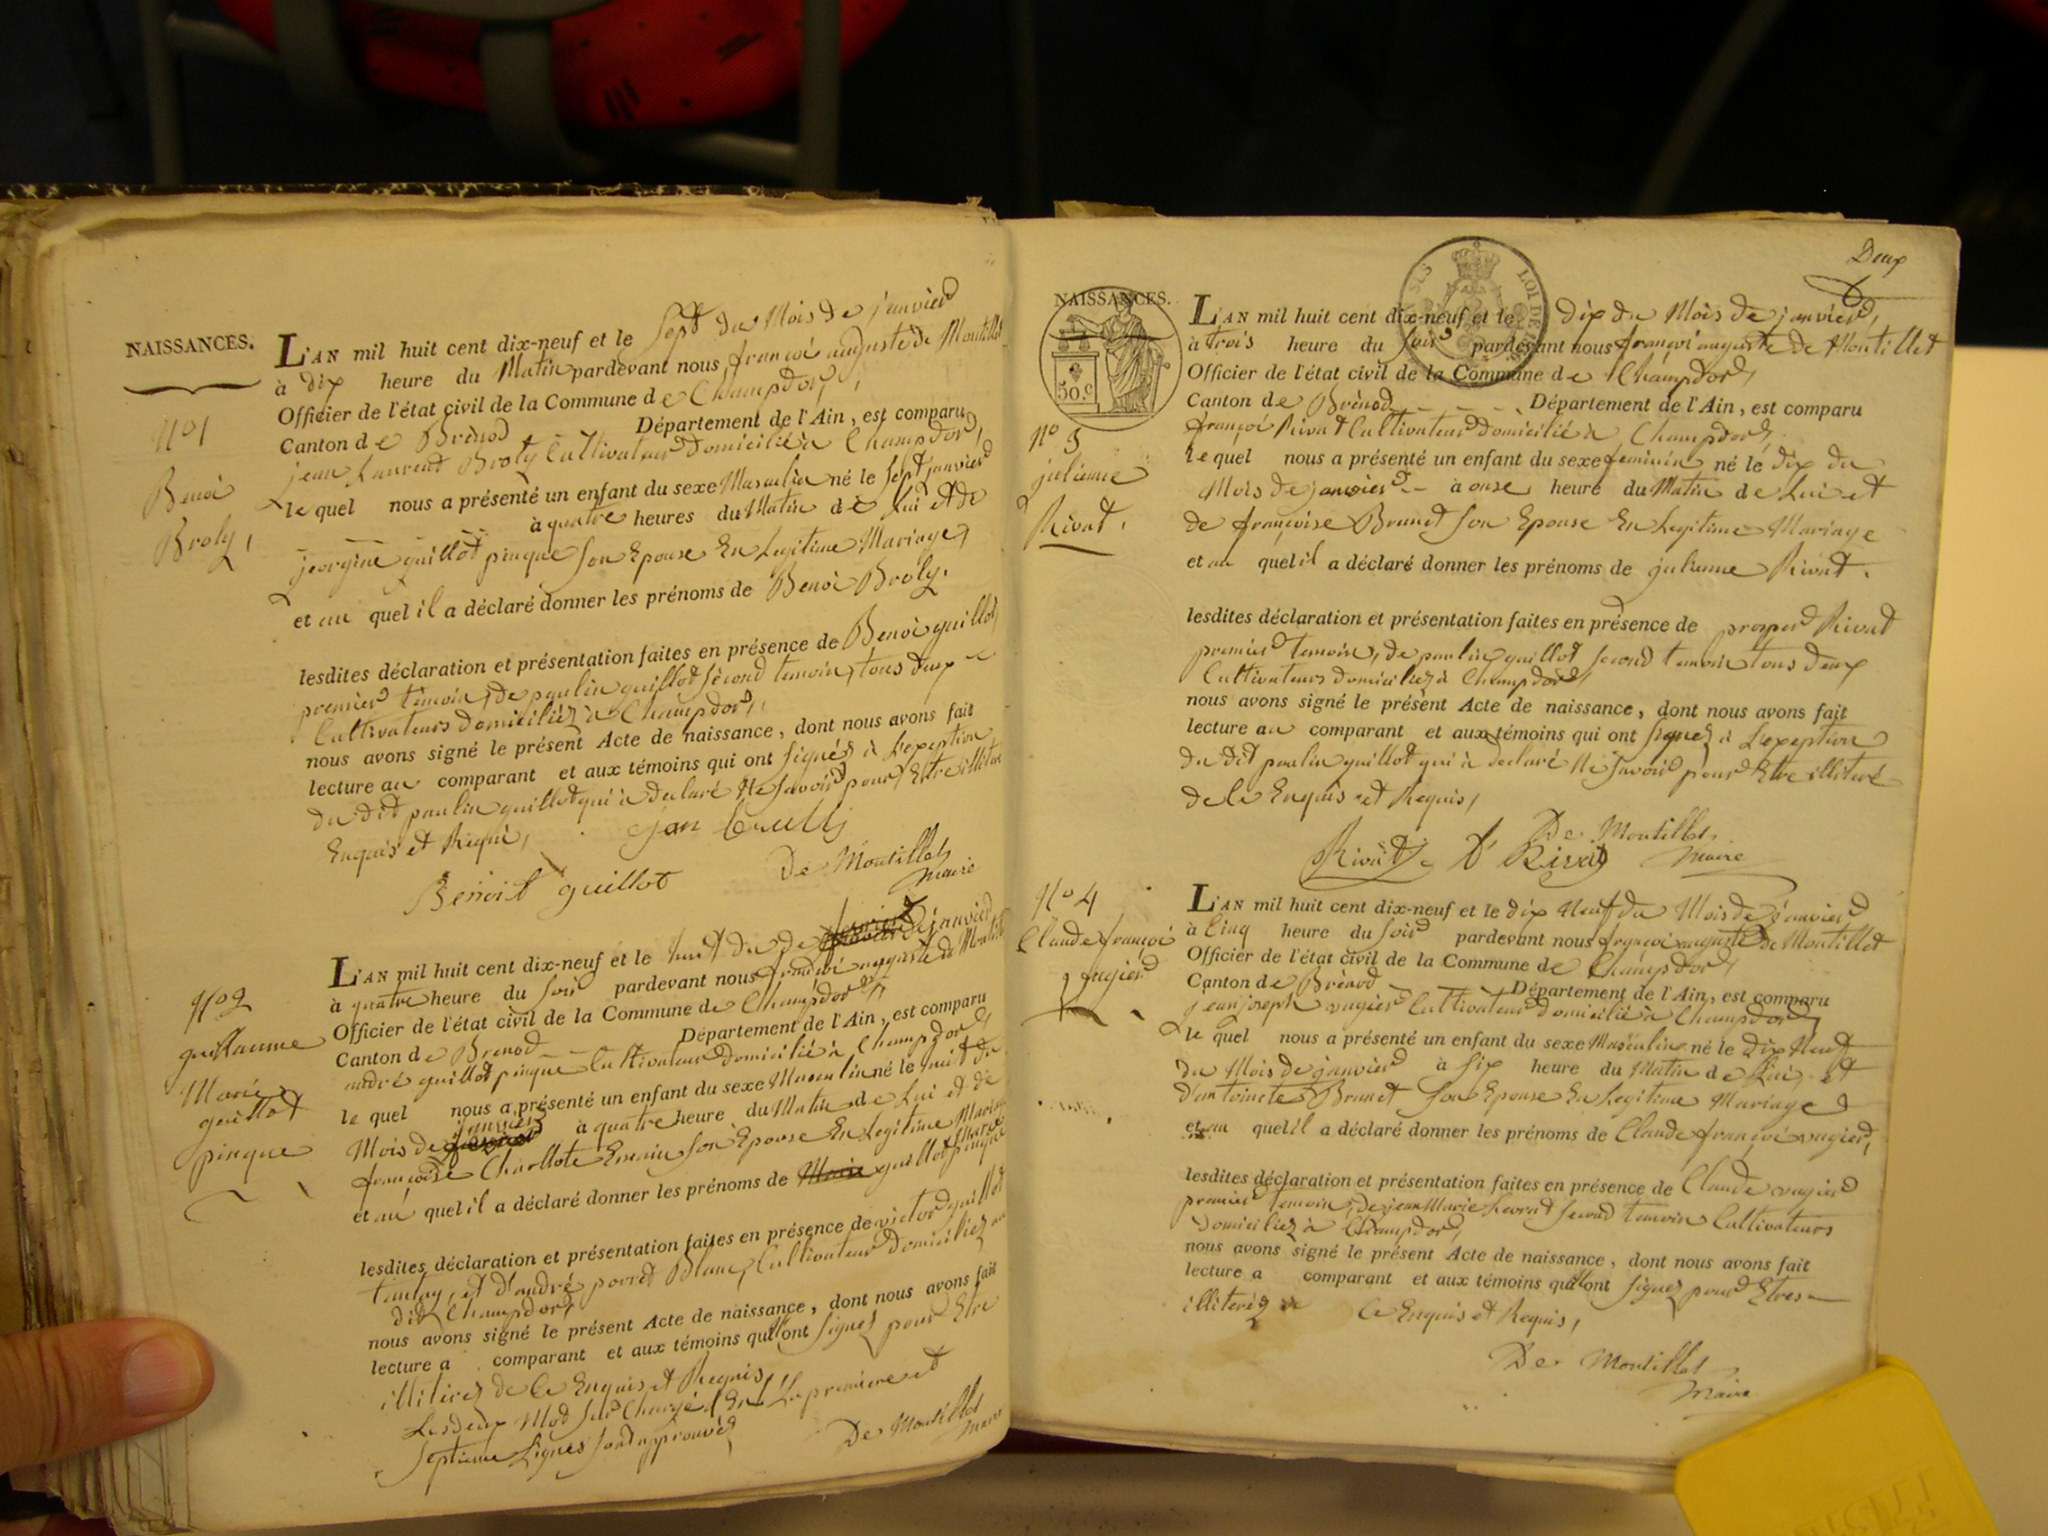 NAISSANCES.
L'AN mil huit cent dix-neuf et le Sept du Mois de janvier
à dix heure du Matin pardevant nous françoi auguste de Montillet
Officier de l'état civil de la Commune de Champdor,
Canton de Brénod Département de l'Ain, est comparu
jean Laurent Broly Cultivateur Domicilié à Champdor,
le quel nous a présenté un enfant du sexe Masculin né le Sept janvier
à quatre heures du Matin de Lui et de
jeorgine guillot pinque Son Epouse En Legitime Mariage,
et au quel il a déclaré donner les prénoms de Benoi Broly.
lesdites déclaration et présentation faites en présence de Benoi guillot
premier temoin, de paulin guillot Second temoin, tous deux
Cultivateurs Domiciliéz à Champdor,
nous avons signé le présent Acte de naissance, dont nous avons fait
lecture au comparant et aux témoins qui ont Signéz à L'exeption
du Dit paulin guillot qui à declaré Ne Savoir pour Etre illitere
Enquis et Requi,
Benoit guillot
De Montillet
maire
N° 1
Benoi
Broly,
L'AN mil huit cent dix-neuf et le huit du de janvier
à quatre heure du Soir pardevant nous françoi auguste de Montillet
Officier de l'état civil de la Commune de Champdor
Canton de Brenod Département de l'Ain, est comparu
andré guillot pinque Cultivateur Domicilié à Champdor,
le quel nous a présenté un enfant du sexe Masculin né le huit du
Mois de janvier à quatre heure du Matin de Lui et de
françoise Charllote Son Epouse En Legitime Mariage
et au quel il a déclaré donner les prénoms de guillot pinque
lesdites déclaration et présentation faites en présence de victor guillot
tantay, et d'andré porret Blanc, Cultivateur Domiciliez au
dit Champdor,
nous avons signé le présent Acte de naissance, dont nous avons fait
lecture a comparant et aux témoins qui ont Signez pour Etre
illiterez de Ce Enquis et Requis,
Les deux Mot Sur Chargé En La premiere et
Septieme Lignes Sont approuvéz
De Montillet
maire
N° 2
guillaume
Marie
guillot
pinque
Deux
NAISSANCES.
50.c
LOI DE
L'AN mil huit cent dix-neuf et le dix du Mois de janvier,
à trois heure du Soir pardevant nous françoi auguste de Montillet
Officier de l'état civil de la Commune de Champdor,
Canton de Brénod Département de l'Ain, est comparu
françoi Rivat Cultivateur Domicilié à Champdor,
le quel nous a présenté un enfant du sexe feminin né le dix du
Mois de janvier à onse heure du Matin de Lui et
de françoise Brunet Son Epouse En Legitime Mariage
et au quel il a déclaré donner les prénoms de julienne Rivat.
lesdites déclaration et présentation faites en présence de prosper Rivat
premier temoin, de paulin guillot Second temoin tous deux
Cultivateurs domiciliez à Champdor,
nous avons signé le présent Acte de naissance, dont nous avons fait
lecture au comparant et aux témoins qui ont Signez à L'exeption
du Dit paulin guillot qui à declaré Ne Savoir pour Etre illiteré
de Ce Enquis et Requis,
Rivat P Rivat De Montillet
maire
N° 3
julienne
Rivat.
L'AN mil huit cent dix-neuf et le dix Neuf du Mois de janvier
à Cinq heure du Soir pardevant nous françoi auguste de Montillet
Officier de l'état civil de la Commune de Champdor,
Canton de Brénod Département de l'Ain, est comparu
jean joseph vugier Cultivateur Domicilié à Champdor,
le quel nous a présenté un enfant du sexe Masculin né le Dix Neuf
du Mois de janvier à Six heure du Matin de Lui et
D'antoinete Brunet Son Epouse En Legitime Mariage
et au quel il a déclaré donner les prénoms de Claude françoi vugier,
lesdites déclaration et présentation faites en présence de Claude vugier
premier temoin, de jean Marie Second temoin Cultivateurs
Domiciliez à Champdor,
nous avons signé le présent Acte de naissance, dont nous avons fait
lecture a comparant et aux témoins qui ont Signez pour Etres
illiteréz Ce Enquis et Requis,
De Montillet
maire
N° 4
Claude françoi
vugier